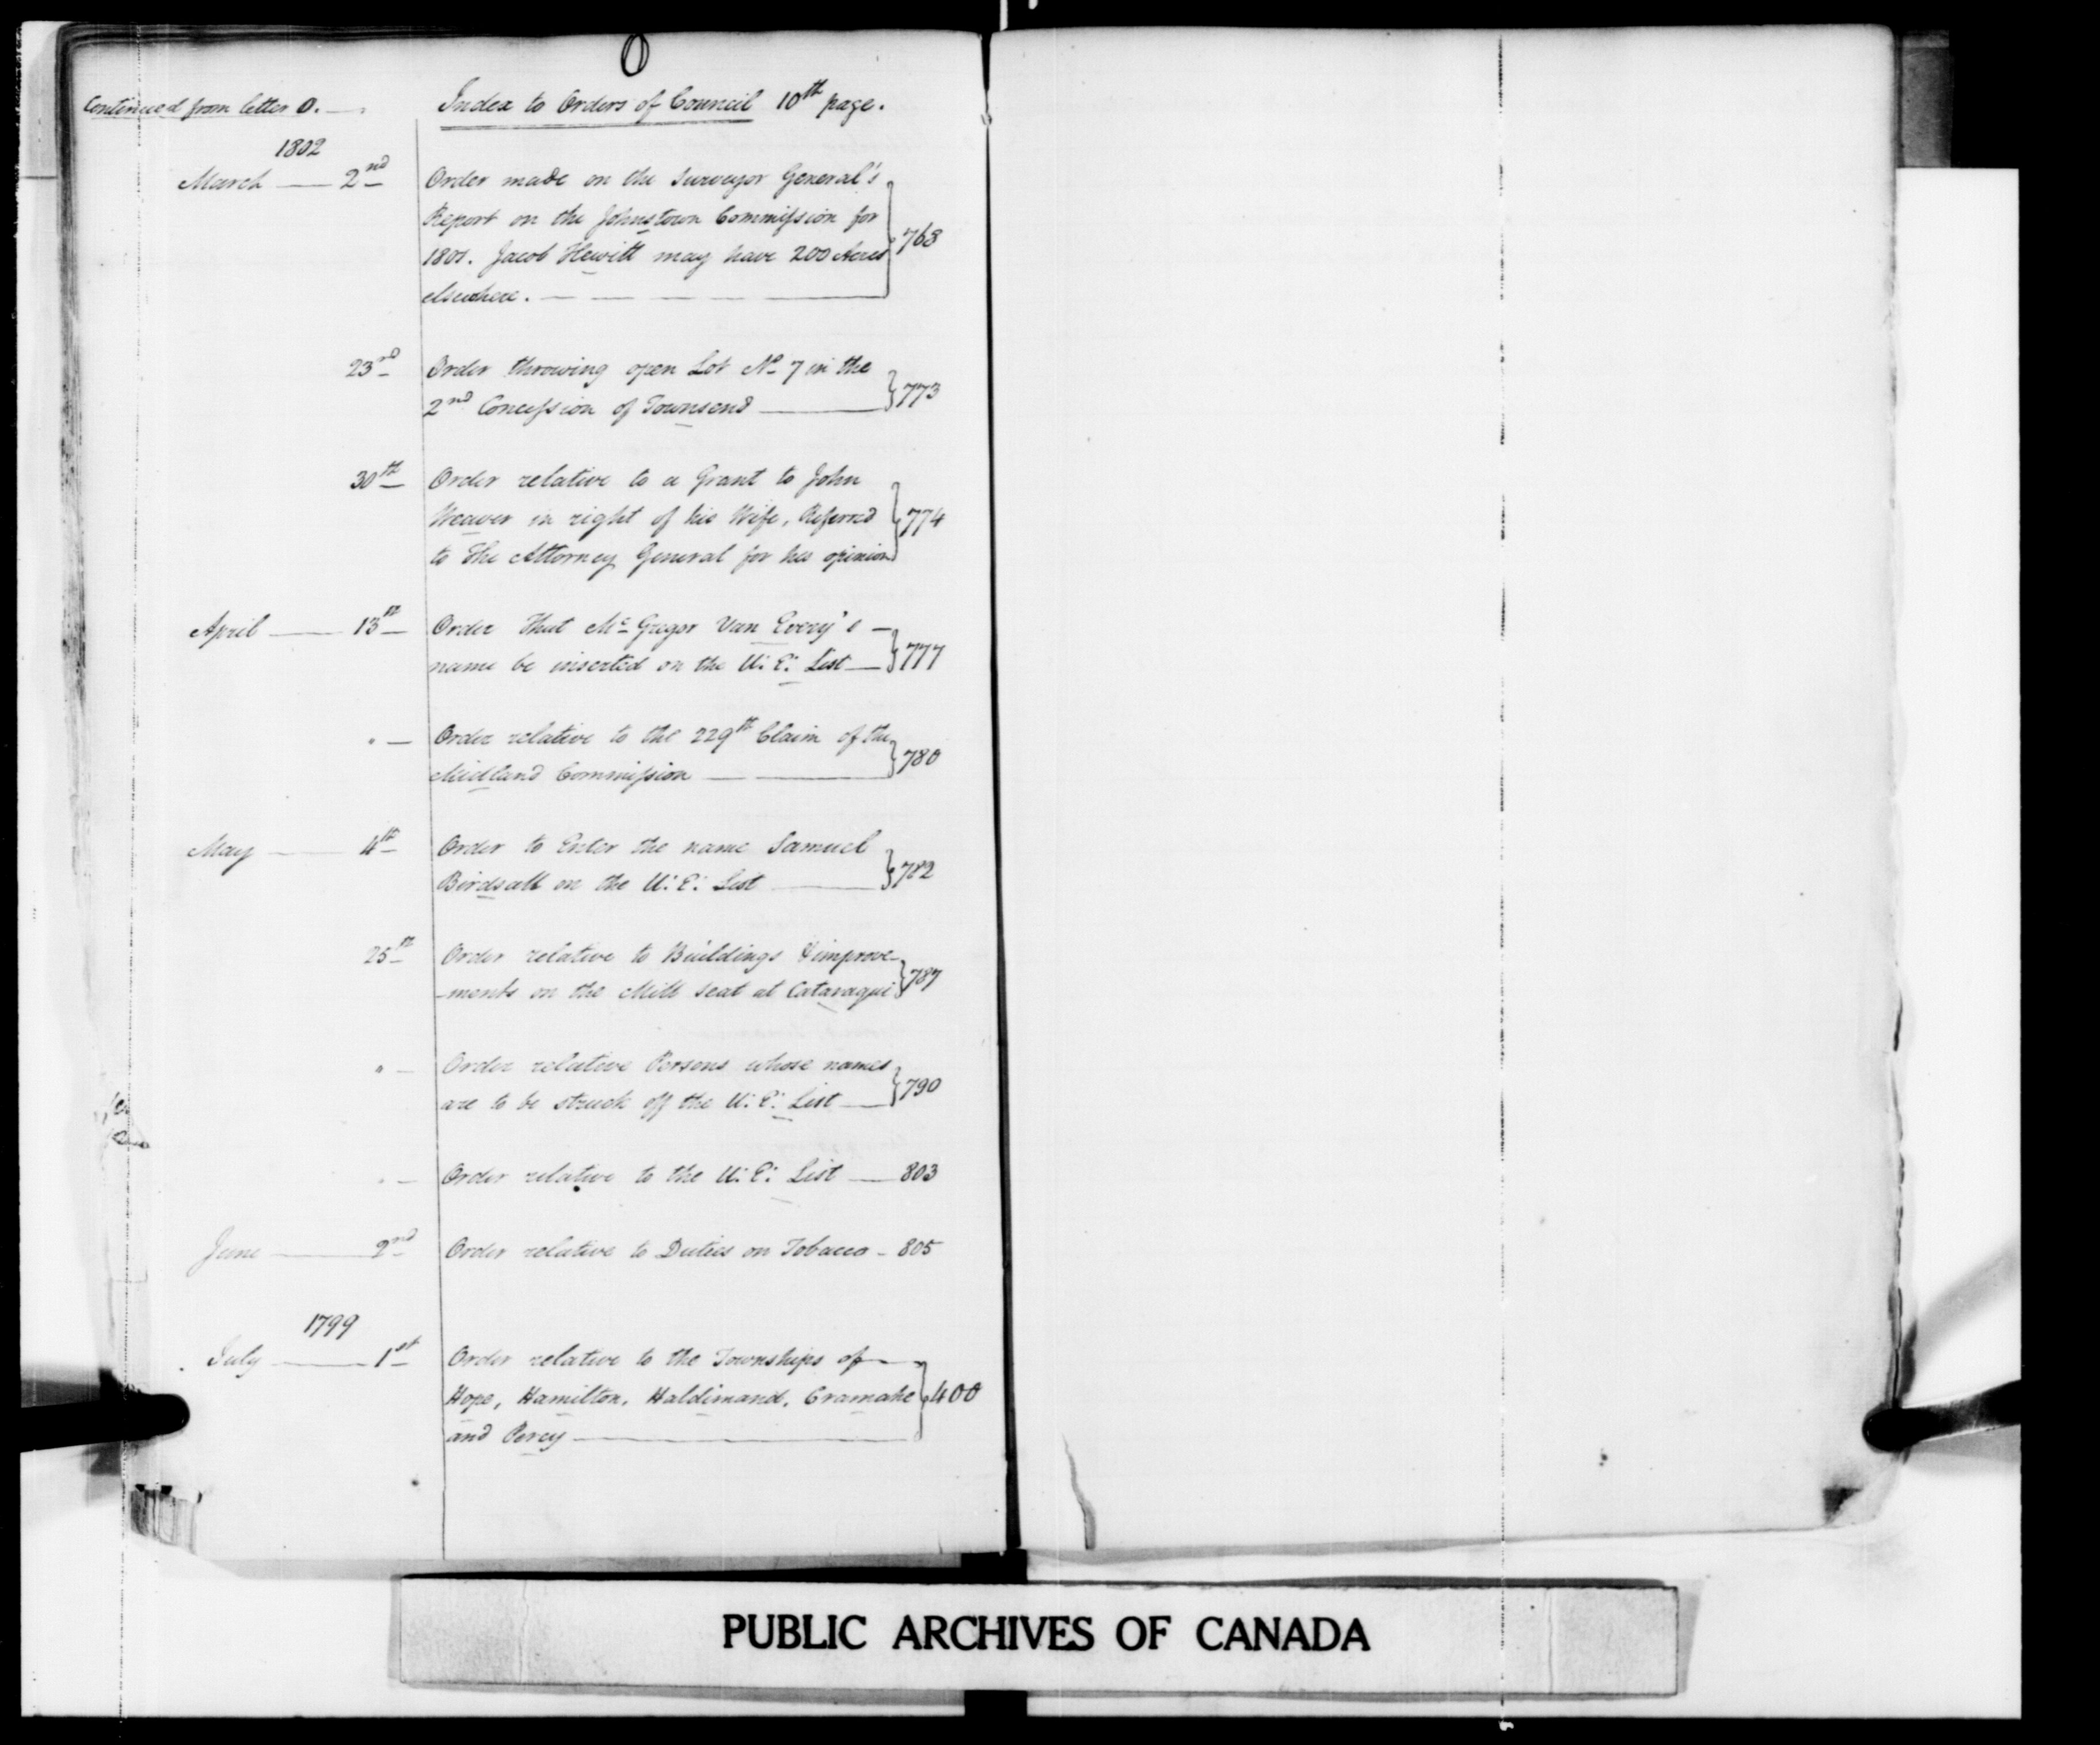 O
Continued from letter O. —
Index to Orders of Council 10th page.
1802
March — 2nd Order made on the Surveyor General's
Report on the Johnstown Commission for
1801. Jacob Hewitt may have 200 Acres
elsewhere. — — — — — 768
23rd Order throwing open Lot No 7 in the
2nd Concession of Townsend — 773
30th Order relative to a Grant to John
Weaver in right of his Wife, Referred
to The Attorney General for his opinion 774
April — 13th Order That Mc Gregor Van Every's —
name be inserted on the U: E: List — 777
" — Order relative to the 229th Claim of the
Midland Commission — 780
May — 4th Order to Enter the name Samuel
Birdsall on the U: E: List — 782
25th Order relative to Buildings & improve-
-ments on the Mill Seat at Cataraqui 787
" — Order relative Persons whose names
are to be struck off the U: E: List — 790
" — Order relative to the U: E: List — 803
June — 2nd Order relative to Duties on Tobacco - 805
1799
July — 1st Order relative to the Townships of —
Hope, Hamilton, Haldimand, Cramahe
and Percy — 400
PUBLIC ARCHIVES OF CANADA